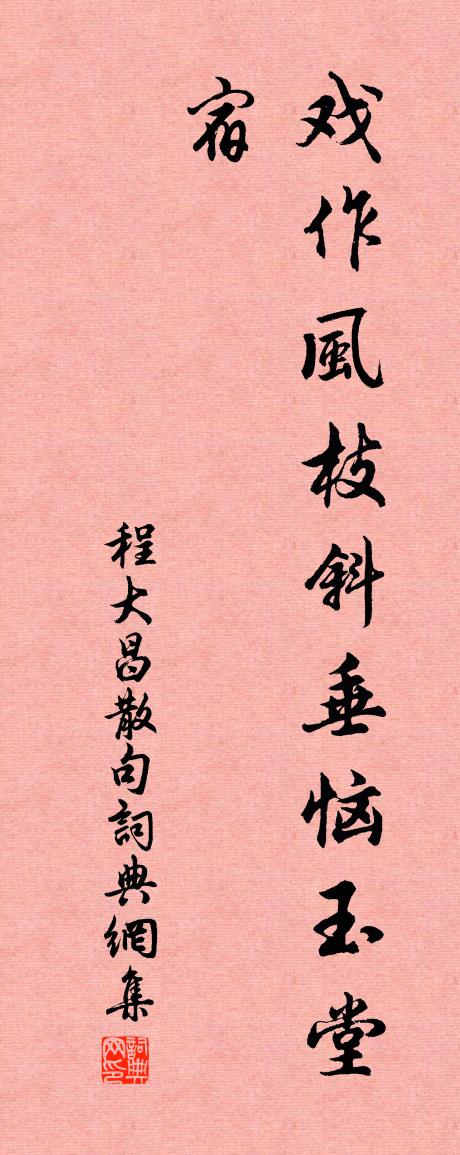 戏作風枝斜垂恼玉堂
宿
程大昌散句詞典網集
詞典网印